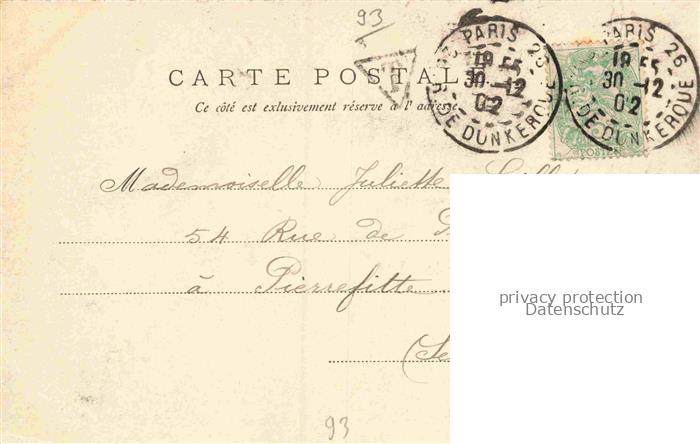 93
T
CARTE POSTAL
Ce côté est exclusivement réservé à l'adresse
PARIS 25
18 55
30 -12
02
R. DE DUNKERQUE
PARIS 26
18 55
30 -12
02
R. DE DUNKERQUE
POSTES
Mademoiselle Juliette
54 Rue de
à Pierrefitte
(Se
privacy protection
Datenschutz
93